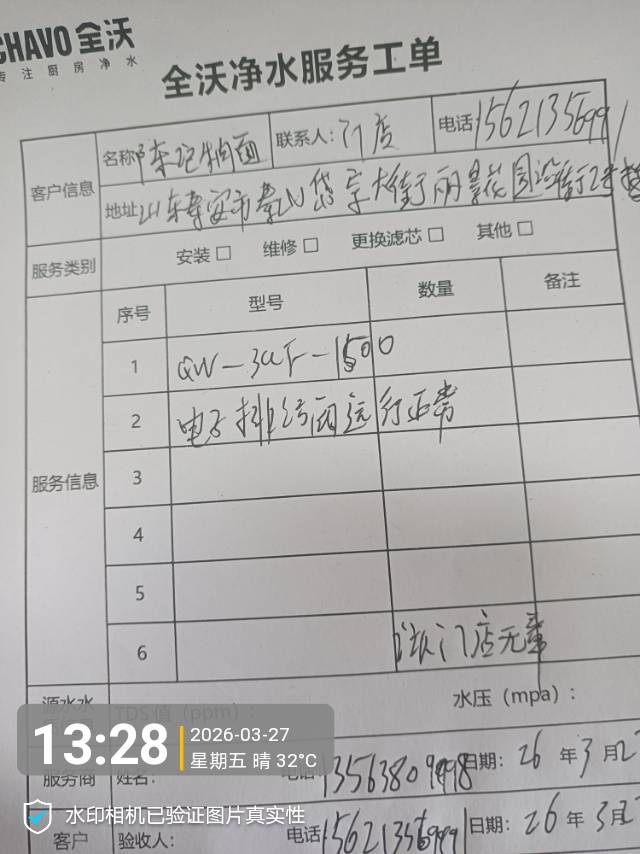 CHAVO 全沃
专注厨房净水
全沃净水服务工单
客户信息 名称 陈记牛肉面 联系人: 门店 电话
地址 山东泰安市泰山岱宗大街丽景花园沿街
服务类别 安装□ 维修□ 更换滤芯□ 其他□
服务信息 序号 型号 数量 备注
1 QW-3UF-1500
2 电子排污阀运行正常
3
4
5
6 门店无章
源水水 TDS值 (ppm): 水压 (mpa):
服务商 姓名: 电话 日期: 26年3月
客户 验收人: 电话 日期: 26年3月
13:28 2026-03-27
星期五 晴 32℃
水印相机已验证图片真实性